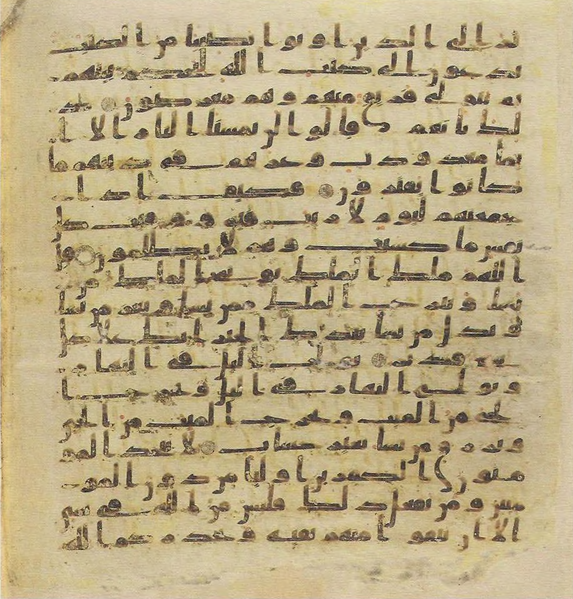 تر الى الذين اوتوا نصيبا من الكتب
يدعون الى كتب الله ليحكم بينهم
ثم يتولى فريق منهم وهم معرضون ذ
لك بانهم قالوا لن تمسنا النار الا ا
ياما معدودت وغرهم فى دينهم ما
كانوا يفترون فكيف اذا
جمعنهم ليوم لا ريب فيه ووفيت كل
نفس ما كسبت وهم لا يظلمون قل
اللهم ملك الملك توتى الملك من
تشا وتنزع الملك ممن تشا وتعز من تشا
وتذل من تشا بيدك الخير انك على كل
شى قدير تولج اليل فى النهار
وتولج النهار فى اليل وتخرج ا
لحى من الميت وتخرج الميت من الحى
وترزق من تشا بغير حساب لا يتخذ المو
منون الكفرين اوليا من دون المو
منين ومن يفعل ذلك فليس من الله فى شى
الا ان تتقوا منهم تقيه ويحذركم الله